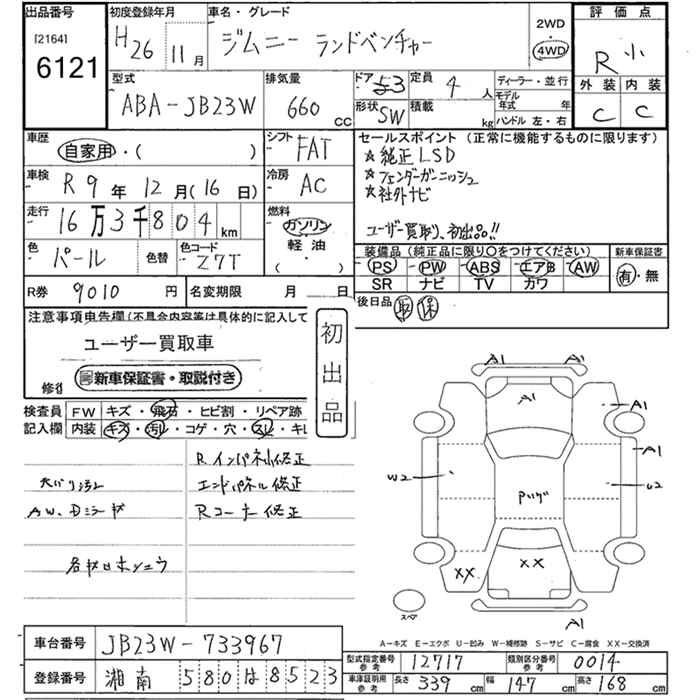 出品番号
[2164]
6121
初度登録年月
H26 11月
車名・グレード
ジムニー ランドベンチャー
2WD
4WD
評価点
R 小
外装 内装
C C
型式
ABA-JB23W
排気量
660 cc
ドア 3
形状 SW
定員 4 人
積載 kg
ディーラー・並行
モデル年式 年
ハンドル 左・右
車歴
自家用・( )
シフト FAT
車検
R9年12月(16日)
冷房 AC
走行
16万3千804km
燃料
ガソリン
軽油
( )
色 パール 色替
色コード Z7T
R券 9010円
名変期限 月 日
セールスポイント(正常に機能するものに限ります)
★純正LSD
★フェンダーガーニッシュ
★社外ナビ
ユーザー買取り、初出品!!
装備品(純正品に限り○をつけてください)
PS PW ABS エアB AW
SR ナビ TV カワ
新車保証書
有・無
後日品 取 保
注意事項申告欄(不具合内容等は具体的に記入して
ユーザー買取車
新車保証書・取説付き
修復
初出品
検査員記入欄
FW キズ・飛石・ヒビ割・リペア跡
内装 キズ・汚レ・コゲ・穴・スレ・キレ
R インパネ小修正
エンドパネル修正
Rコーナー修正
AW、Dミラーキズ
A1
A1
A1
A1
A1
W2
U2
A1
XX
XX
A1
スペア
A-キズ E-エクボ U-凹み W-補修跡 S-サビ C-腐食 XX-交換済
車台番号 JB23W-733967
登録番号 湘南 580 は 8523
型式指定番号 参考 12717
類別区分番号 参考 0014
車庫証明用 参考 長さ 339cm 幅 147cm 高さ 168cm